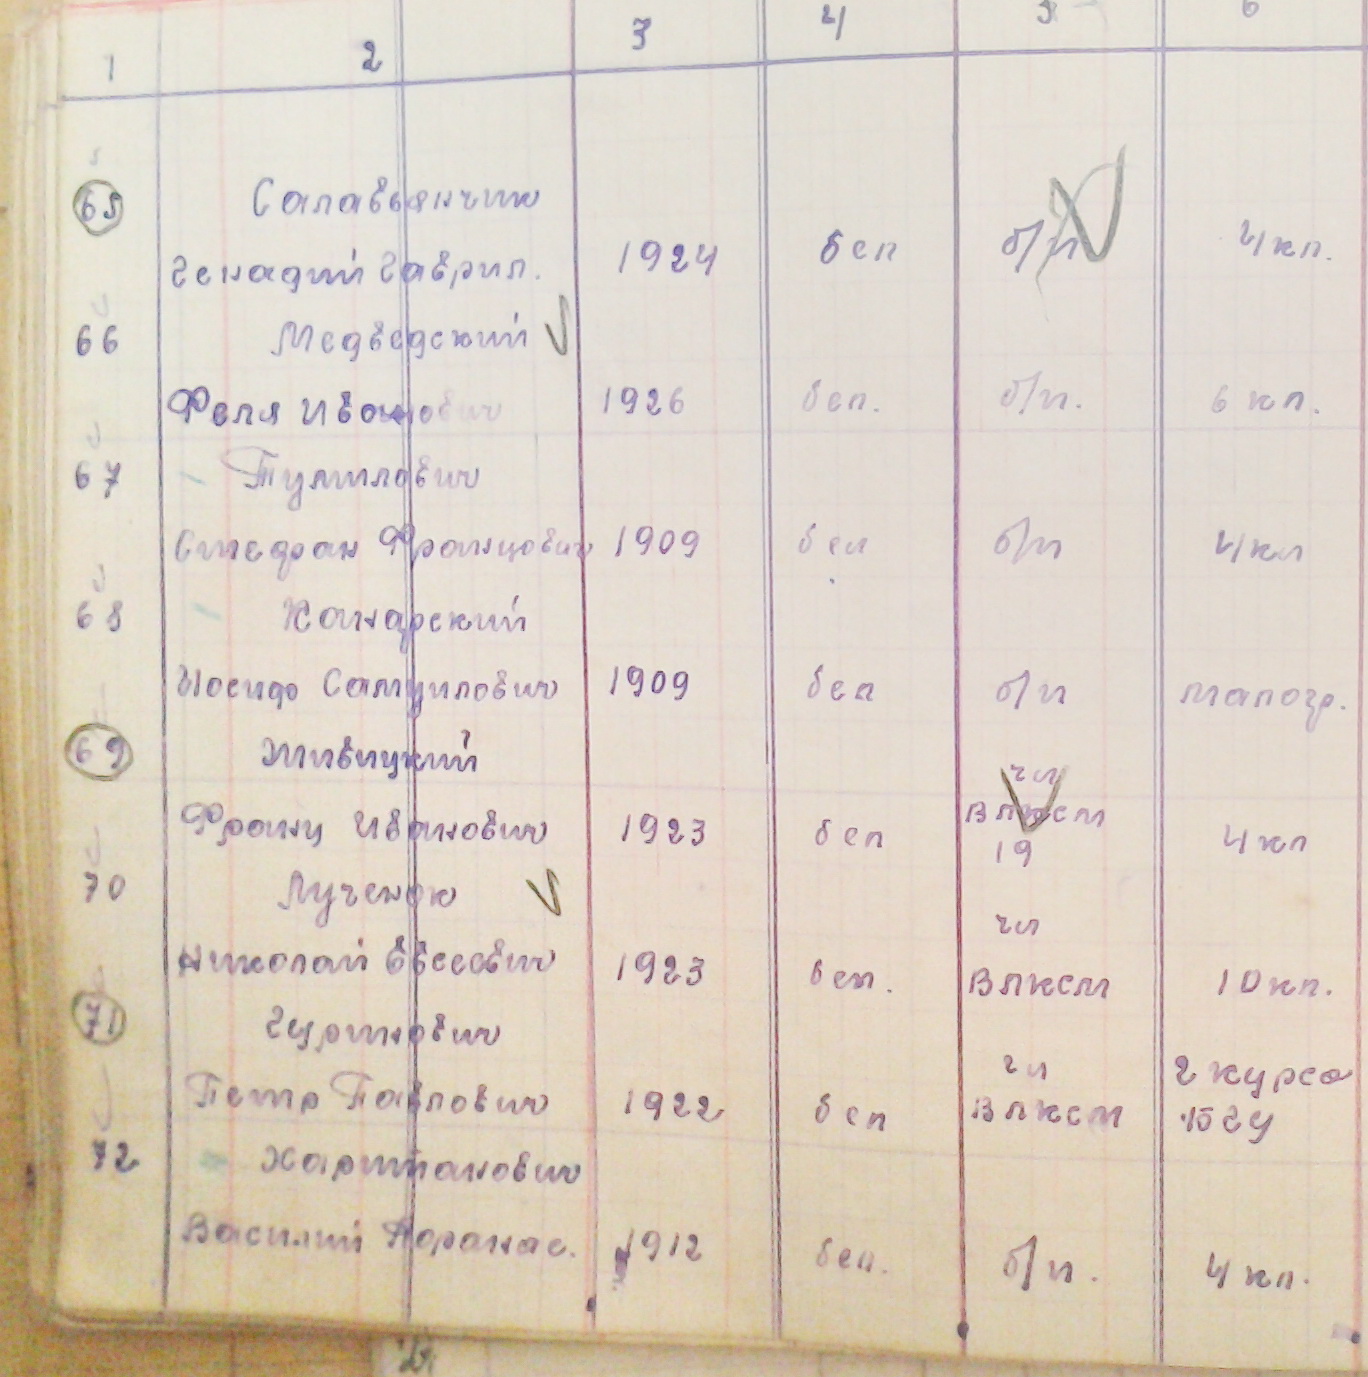 1 2 3 4 5 6
65 Салавьянчик
Генадий Гаврил. 1924 бел б/п 4 кл.
66 Медведский
Феля Иванович 1926 бел. б/п. 6 кл.
67 Тумилович
Стефан Францович 1909 бел б/п 4 кл
68 Хонарский
Иосиф Самуилович 1909 бел б/п малогр.
69 Живицкий чл
Франц Иванович 1923 бел ВЛКСМ 4 кл
19
70 Лученок чл
Николай Евсеевич 1923 бел. ВЛКСМ 10 кл.
71 Гуринович
чл 2 курса
Петр Павлович 1922 бел ВЛКСМ БГУ
72 Хаританович
Василий Афанас. 1912 бел. б/п. 4 кл.